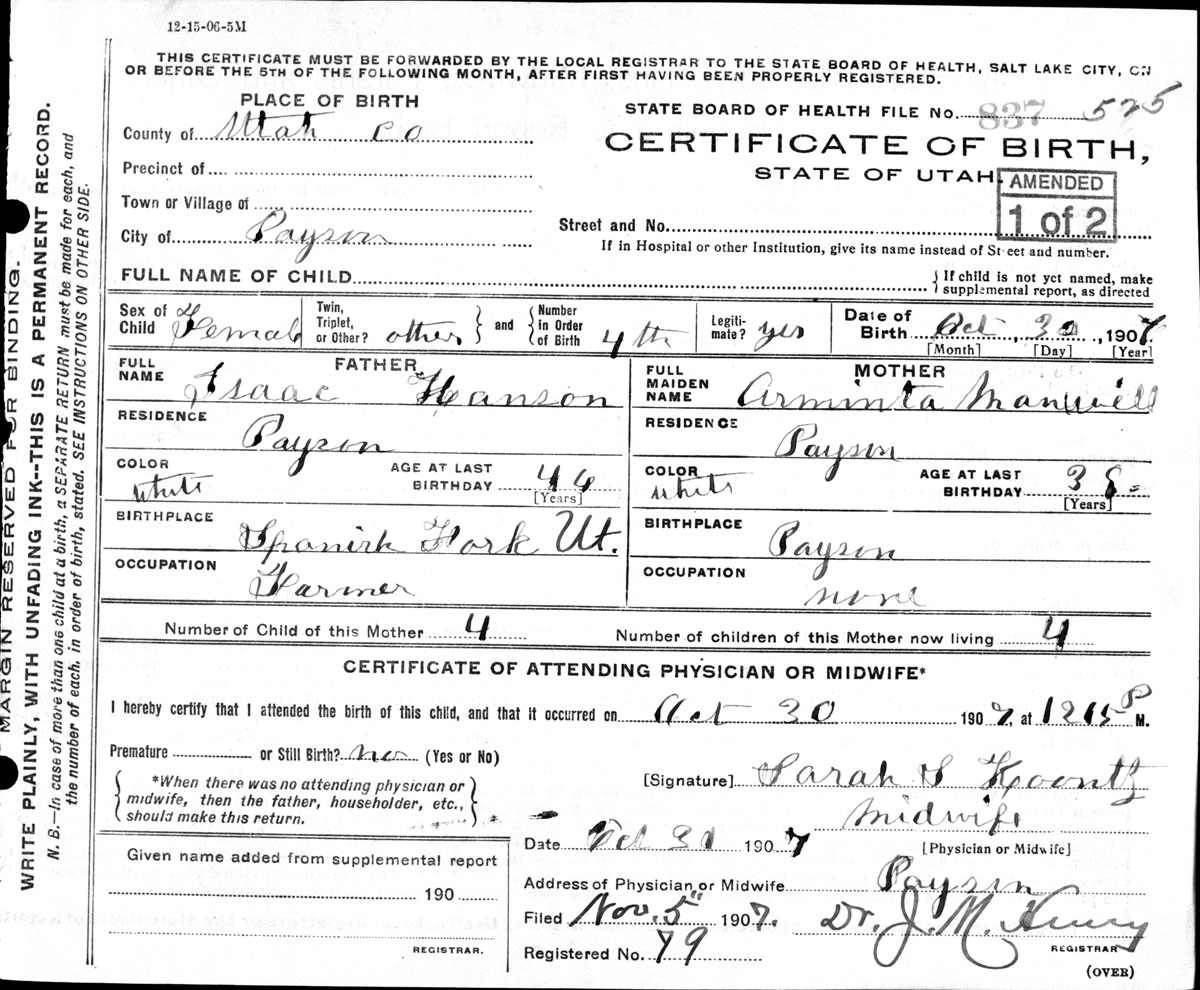 12-15-06-5M
THIS CERTIFICATE MUST BE FORWARDED BY THE LOCAL REGISTRAR TO THE STATE BOARD OF HEALTH, SALT LAKE CITY, ON
OR BEFORE THE 5TH OF THE FOLLOWING MONTH, AFTER FIRST HAVING BEEN PROPERLY REGISTERED.
MARGIN RESERVED FOR BINDING.
WRITE PLAINLY, WITH UNFADING INK--THIS IS A PERMANENT RECORD.
N. B.—In case of more than one child at a birth, a SEPARATE RETURN must be made for each, and
the number of each, in order of birth, stated. SEE INSTRUCTIONS ON OTHER SIDE.
PLACE OF BIRTH
County of Utah co
Precinct of
Town or Village of
City of Payson
STATE BOARD OF HEALTH FILE No. 837 525
CERTIFICATE OF BIRTH,
STATE OF UTAH.
AMENDED
1 of 2
Street and No.
If in Hospital or other Institution, give its name instead of Street and number.
FULL NAME OF CHILD
If child is not yet named, make
supplemental report, as directed
Sex of Child Female
Twin, Triplet, or Other? other
and Number in Order of Birth 4th
Legiti-mate? yes
Date of Birth Oct, 30, 1907
[Month] [Day] [Year]
FATHER
FULL NAME Isaac Hanson
RESIDENCE
Payson
COLOR white
AGE AT LAST BIRTHDAY 44
[Years]
BIRTHPLACE
Spanish Fork Ut.
OCCUPATION
Farmer
MOTHER
FULL MAIDEN NAME Arminta Manwill
RESIDENCE
Payson
COLOR white
AGE AT LAST BIRTHDAY 38
[Years]
BIRTHPLACE
Payson
OCCUPATION
none
Number of Child of this Mother 4
Number of children of this Mother now living 4
CERTIFICATE OF ATTENDING PHYSICIAN OR MIDWIFE*
I hereby certify that I attended the birth of this child, and that it occurred on Oct 30 1907, at 1215 P M.
Premature or Still Birth? no (Yes or No)
*When there was no attending physician or
midwife, then the father, householder, etc.,
should make this return.
[Signature] Sarah S Koontz
midwife
Date Oct 30 1907
[Physician or Midwife]
Given name added from supplemental report
190
REGISTRAR.
Address of Physician or Midwife Payson
Filed Nov. 5" 1907. Dr. J. M. Henry
REGISTRAR
Registered No. 79
(OVER)